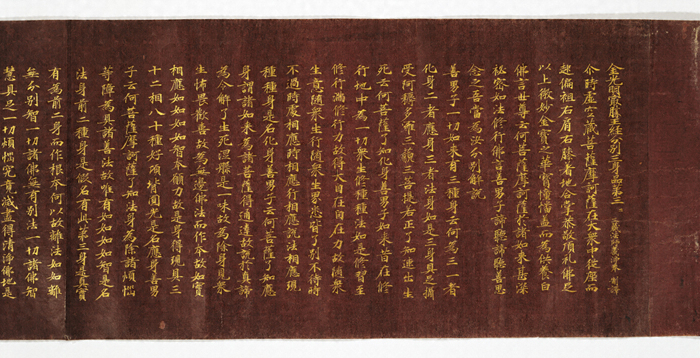 金光明最勝王經分別三身品第三 三藏法師義淨奉 制譯
尒時虛空藏菩薩摩訶薩在大衆中從座而
起偏袒右肩右膝著地合掌恭敬頂禮佛足
以上微妙金寶之華寶幢幡盖而為供養白
佛言世尊云何菩薩摩訶薩於諸如來甚深
祕密如法修行佛言善男子諦聽諦聽善思
念之吾當為汝分別解說
善男子一切如來有三種身云何為三一者
化身二者應身三者法身如是三身具足攝
受阿耨多羅三藐三菩提若正了知速出生
死云何菩薩了知化身善男子如來昔在修
行地中為一切衆生修種種法如是修習至
修行滿修行力故得大自在自在力故隨衆
生意隨衆生行隨衆生界悉皆了別不待時
不過時處相應時相應行相應說法相應現
種種身是名化身善男子云何菩薩了知應
身謂諸如來為諸菩薩得通達故說於真諦
為令解了生死涅槃是一味故為除身見衆
生怖畏歡喜故為無邊佛法而作本故如實
相應如如如如智本願力故是身得現具三
十二相八十種好項背圓光是名應身善男
子云何菩薩摩訶薩了知法身為除諸煩惱
等障為具諸善法故唯有如如如如智是名
法身前二種身是假名有此第三身是真實
有為前二身而作根本何以故離法如如離
無分別智一切諸佛無有別法一切諸佛智
慧具足一切煩惱究竟滅盡得清淨佛地是